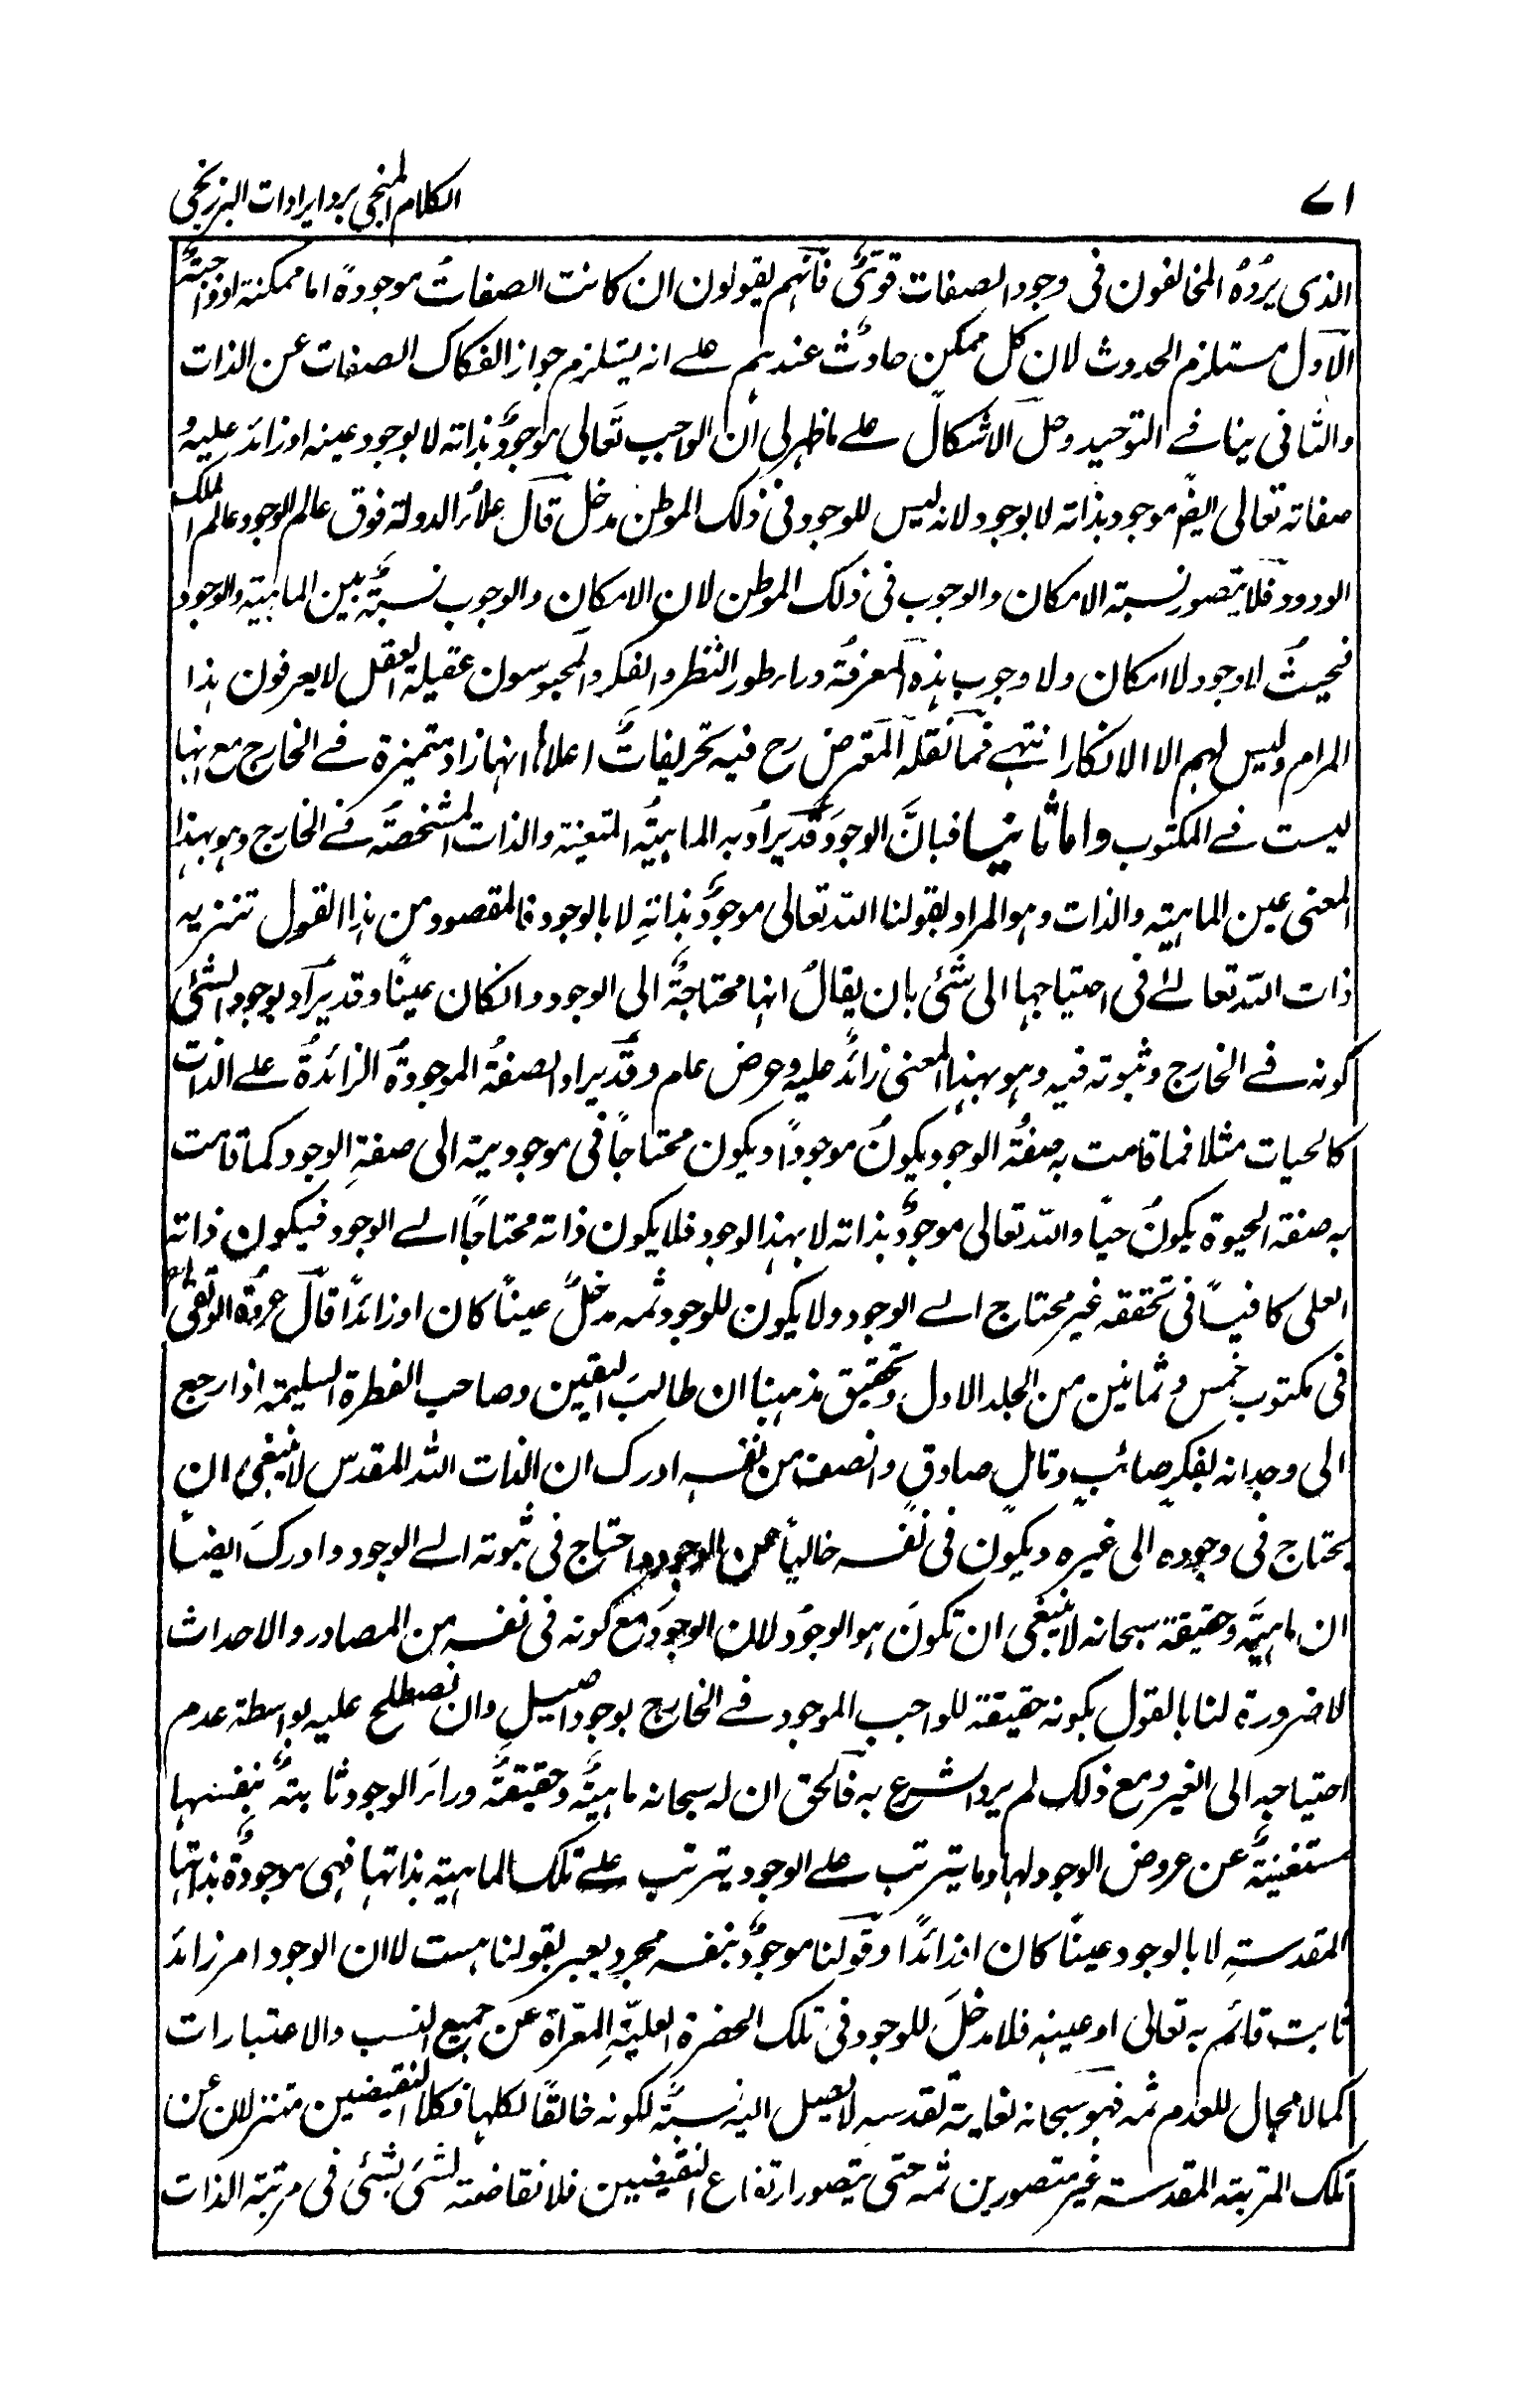 ٧١
الكلام المنجي برد ايرادات البرزنجي
الذى يُردُه المخالفون فى وجود الصفات قوىٌّ فانهم يقولون ان كانت الصفاتُ موجودةً اما ممكنة او واجبةٌ
الاول مستلزم الحدوث لان كل ممكن حادثٌ عندهم على انه يستلزم جواز انفكاك الصفات عن الذات
والثانى ينافى التوحيد وحل الاشكال على ما ظهر لى ان الواجب تعالى موجودٌ بذاته لا بوجود عينه او زائد عليه و
صفاته تعالى ايضا موجود بذاته لا بوجود لانه ليس للوجود فى ذلك الموطن مدخل قال علاء الدولة فوق عالم الوجود عالم الملك
الودود فلا يتصور نسبة الامكان والوجوب فى ذلك الموطن لان الامكان والوجوب نسبةٌ بين الماهية والوجود
فحيثُ لا وجود لا امكان ولا وجوب هذه المعرفةُ وراء طور النظر والفكر والمحبوسون عقيلة العقل لا يعرفون هذا
المرام وليس لهم الا الانكار انتهى فما نقله المعترض رح فيه تحريفاتٌ اعلاها انها زاد متميزة فى الخارج مع انها
ليست فى المكتوب واما ثانيا فبانَّ الوجودَ قد يُرادُ به الماهيةُ المتعينة والذات المشخصةُ فى الخارج وهو بهذا
المعنى عين الماهية والذات وهو المراد بقولنا الله تعالى موجودٌ بذاتهِ لا بالوجود فالمقصود من هذا القول تنزيه
ذات الله تعالى فى احتياجها الى شئ بان يقالُ انها محتاجةٌ الى الوجود وان كان عينًا وقد يُراد بوجود الشئ
كونه فى الخارج وثبوته فيه وهو بهذا المعنى زائدٌ عليه وعرض عام وقد يراد الصفةُ الموجودةُ الزائدةُ على الذات
كالحيات مثلا فما قامت به صفةُ الوجود يكونُ موجودًا ويكون محتاجًا فى موجوديته الى صفةِ الوجود كما قامت
به صفة الحيوة يكونُ حيًا والله تعالى موجودٌ بذاته لا بهذا الوجود فلا يكون ذاته محتاجًا الى الوجود فيكون ذاته
العلى كافيًا فى تحققه غير محتاج الى الوجود ولا يكون للوجود ثمه مدخلٌ عينًا كان او زائدًا قال عروة الوثقى
فى مكتوب خمس وثمانين من الجلد الاول وتحقيق مذهبنا ان طالبَ اليقين وصاحب الفطرة السليمة اذا رجع
الى وجدانه بفكرٍ صائبٍ وتاملٍ صادقٍ وانصف من نفسه ادرك ان الذات الله المقدس لا ينبغى ان
يحتاج فى وجوده الى غيره ويكون فى نفسه خاليًا عن الوجود واحتاج فى ثبوته الى الوجود وادركَ ايضًا
ان ماهيته وحقيقة سبحانه لا ينبغى ان تكونَ هو الوجودُ لان الوجودَ مع كونه فى نفسه من المصادر والاحداث
لا ضرورة لنا بالقول بكونه حقيقة للواجب الموجود فى الخارج بوجود اصيل وان نصطلح عليه بواسطة عدم
احتياجه الى الغير ومع ذلك لم يرد الشرع به فالحق ان له سبحانه ماهيةً وحقيقةً وراءَ الوجود ثابتةٌ بنفسها
مستغنيةٌ عن عروض الوجود لها وما يترتب على الوجود يترتب على تلك الماهية بذاتها فهى موجودةٌ بذاتها
المقدسةِ لا بالوجود عينًا كان او زائدًا وقولنا موجودٌ بنفسه مجرد تعبير بقولنا هست لا ان الوجود امر زائد
ثابت قائم به تعالى او عينه فلا مدخلَ للوجود فى تلك الحضرة العليةِ المتعراة عن جميع النسب والاعتبارات
كما لا مجال للعدم ثمه فهو سبحانه لغاية تقدسه لا يعيل اليه نسبةٌ لكونه خالقًا لكلها فكلا النقيضين متنزلان عن
تلك المرتبة المقدسة غير متصورين ثمه حتى يتصور ارتفاع النقيضين فلا نقاضة لشئ بشئ فى مرتبة الذات